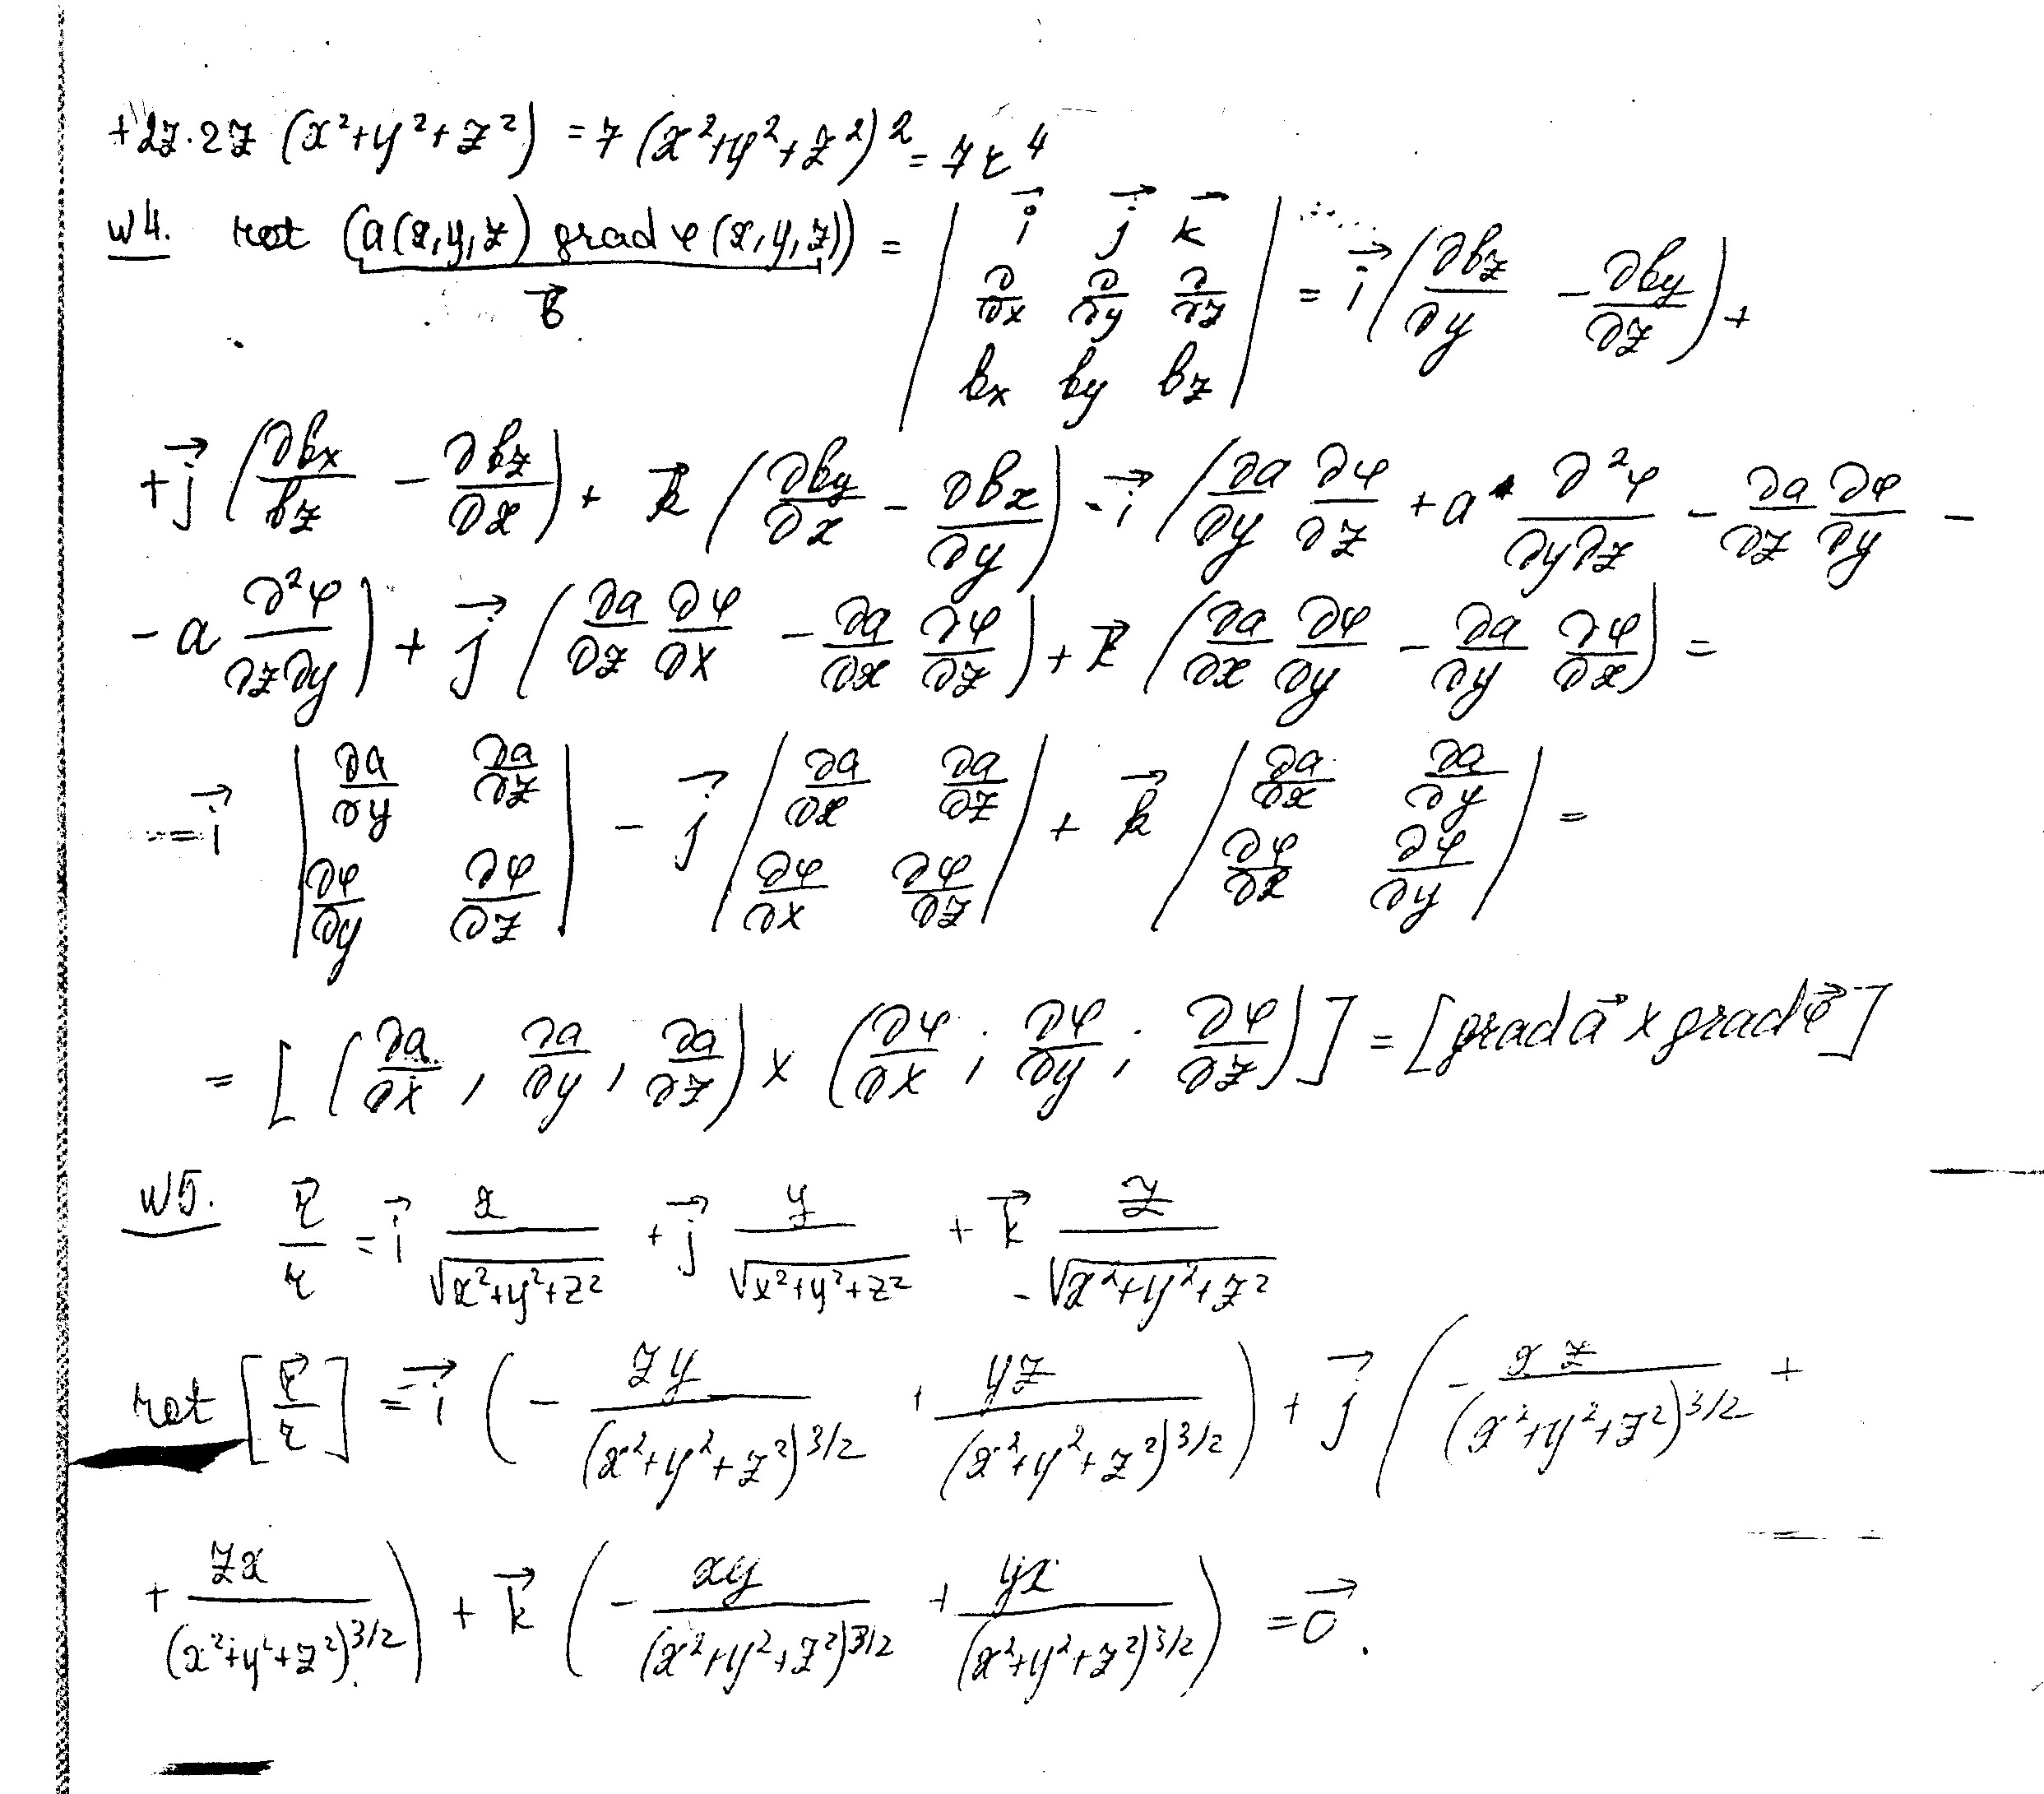 +2z·2z (x²+y²+z²) = 7 (x²+y²+z²)² = 7r⁴
№4. rot (a(x,y,z) grad φ(x,y,z)) = | i⃗ j⃗ k⃗ ; ∂/∂x ∂/∂y ∂/∂z ; bx by bz | = i⃗ (∂bz/∂y − ∂by/∂z) +
b⃗
+ j⃗ (∂bx/bz − ∂bz/∂x) + k⃗ (∂by/∂x − ∂bx/∂y) = i⃗ (∂a/∂y ∂φ/∂z + a · ∂²φ/∂y∂z − ∂a/∂z ∂φ/∂y −
− a ∂²φ/∂z∂y) + j⃗ (∂a/∂z ∂φ/∂x − ∂a/∂x ∂φ/∂z) + k⃗ (∂a/∂x ∂φ/∂y − ∂a/∂y ∂φ/∂x) =
= i⃗ | ∂a/∂y ∂a/∂z ; ∂φ/∂y ∂φ/∂z | − j⃗ | ∂a/∂x ∂a/∂z ; ∂φ/∂x ∂φ/∂z | + k⃗ | ∂a/∂x ∂a/∂y ; ∂φ/∂x ∂φ/∂y | =
= [ (∂a/∂x, ∂a/∂y, ∂a/∂z) × (∂φ/∂x; ∂φ/∂y; ∂φ/∂z) ] = [grad a⃗ × grad φ⃗]
№5. r⃗/r = i⃗ x/√(x²+y²+z²) + j⃗ y/√(x²+y²+z²) + k⃗ z/√(x²+y²+z²)
rot [r⃗/r] = i⃗ (− zy/(x²+y²+z²)^3/2 + yz/(x²+y²+z²)^3/2) + j⃗ (− xz/(x²+y²+z²)^3/2 +
+ zx/(x²+y²+z²)^3/2) + k⃗ (− xy/(x²+y²+z²)^3/2 + yx/(x²+y²+z²)^3/2) = 0⃗.